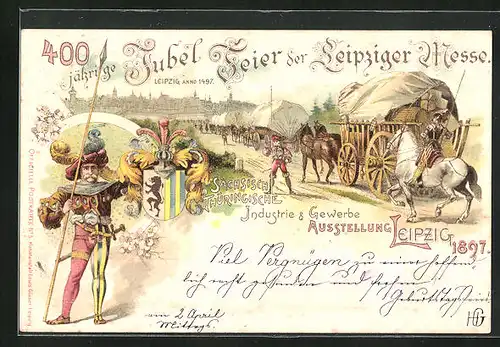 400
jährige Jubel Feier der Leipziger Messe.
LEIPZIG ANNO 1497.
SÄCHSISCH
THÜRINGISCHE
Industrie & Gewerbe
AUSSTELLUNG LEIPZIG
1897.
Viel Vergnügen zu
recht gesunde und frohen
Geburtstagsfeier
am 2 April
Mittags.